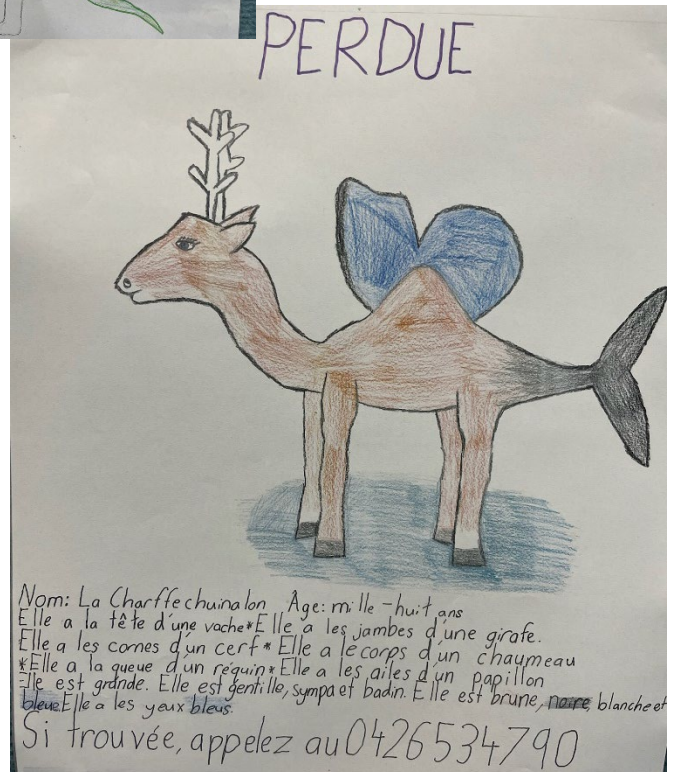 PERDUE
Nom: La Charffechuinalon Âge: mille-huit ans
Elle a la tête d'une vache*Elle a les jambes d'une girafe.
Elle a les cornes d'un cerf* Elle a le corps d'un chaumeau
*Elle a la queue d'un réquin*Elle a les ailes d'un papillon
Elle est grande. Elle est gentille, sympa et badin. Elle est brune, noire, blanche et
bleue.Elle a les yeux bleus.
Si trouvée, appelez au 0426534790